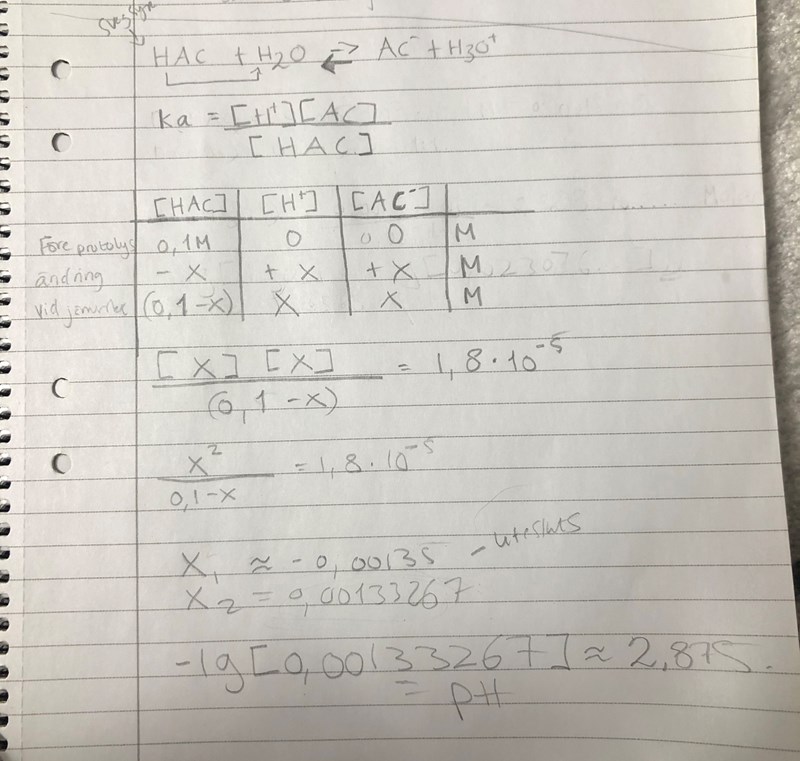 HAC + H2O ⇌ AC⁻ + H3O⁺
ka = [H⁺][AC]
[HAC]
[HAC] [H⁺] [AC⁻]
Före protolys 0,1M 0 0 M
ändring - X + X + X M
vid jämvikt (0,1-X) X X M
[X] [X] = 1,8·10⁻⁵
(0,1-X)
X² = 1,8·10⁻⁵
0,1-X
X₁ ≈ -0,00135 - utesluts
X₂ = 0,00133267
-lg[0,00133267] ≈ 2,875.
= pH